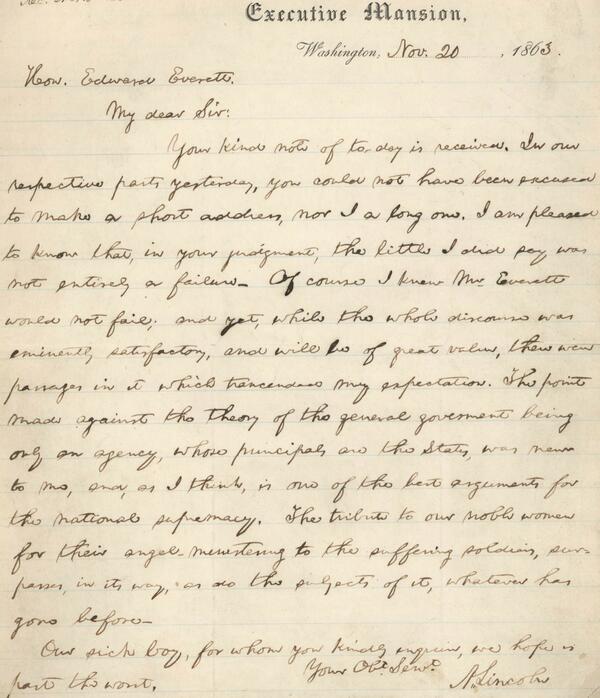 Executive Mansion,
Washington, Nov. 20, 1863.
Hon. Edward Everett.
My dear Sir:
Your kind note of to-day is received. In our
respective parts yesterday, you could not have been excused
to make a short address, nor I a long one. I am pleased
to know that, in your judgment, the little I did say was
not entirely a failure. Of course I knew Mr. Everett
would not fail; and yet, while the whole discourse was
eminently satisfactory, and will be of great value, there were
passages in it which trancended my expectation. The point
made against the theory of the general goverment being
only an agency, whose principals are the States, was new
to me, and, as I think, is one of the best arguments for
the national supremacy. The tribute to our noble women
for their angel-ministering to the suffering soldiers, sur-
passes, in its way, as do the subjects of it, whatever has
gone before.
Our sick boy, for whom you kindly inquire, we hope is
past the worst.
Your Obt. Servt.
A. Lincoln